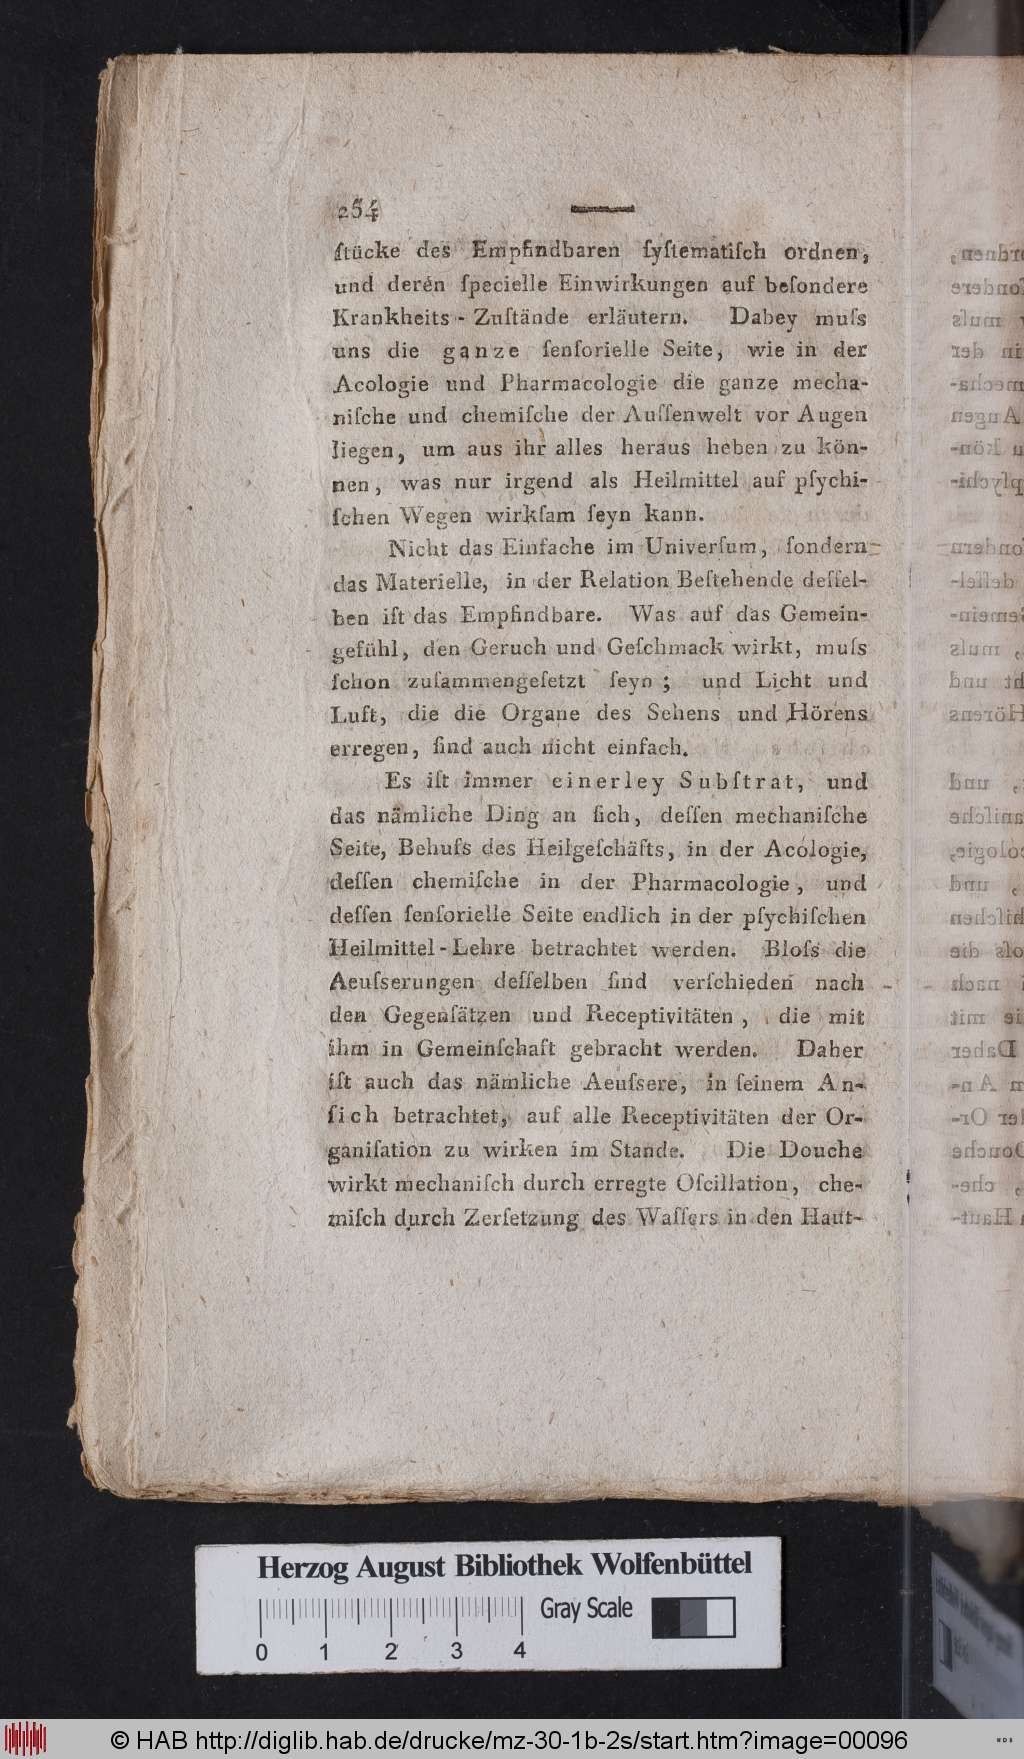 254
ſtücke des Empfindbaren ſyſtematiſch ordnen,
und deren ſpecielle Einwirkungen auf beſondere
Krankheits - Zuſtände erläutern. Dabey muſs
uns die ganze ſenſorielle Seite, wie in der
Acologie und Pharmacologie die ganze mecha-
niſche und chemiſche der Auſſenwelt vor Augen
liegen, um aus ihr alles heraus heben zu kön-
nen, was nur irgend als Heilmittel auf pſychi-
ſchen Wegen wirkſam ſeyn kann.
Nicht das Einfache im Univerſum, ſondern
das Materielle, in der Relation Beſtehende deſſel-
ben iſt das Empfindbare. Was auf das Gemein-
gefühl, den Geruch und Geſchmack wirkt, muſs
ſchon zuſammengeſetzt ſeyn; und Licht und
Luft, die die Organe des Sehens und Hörens
erregen, ſind auch nicht einfach.
Es iſt immer einerley Subſtrat, und
das nämliche Ding an ſich, deſſen mechaniſche
Seite, Behufs des Heilgeſchäfts, in der Acologie,
deſſen chemiſche in der Pharmacologie, und
deſſen ſenſorielle Seite endlich in der pſychiſchen
Heilmittel-Lehre betrachtet werden. Bloſs die
Aeuſserungen deſſelben ſind verſchieden nach
den Gegenſätzen und Receptivitäten, die mit
ihm in Gemeinſchaft gebracht werden. Daher
iſt auch das nämliche Aeuſsere, in ſeinem An-
ſich betrachtet, auf alle Receptivitäten der Or-
ganiſation zu wirken im Stande. Die Douche
wirkt mechaniſch durch erregte Oſcillation, che-
miſch durch Zerſetzung des Waſſers in den Haut-
Herzog August Bibliothek Wolfenbüttel
Gray Scale
0 1 2 3 4
© HAB http://diglib.hab.de/drucke/mz-30-1b-2s/start.htm?image=00096